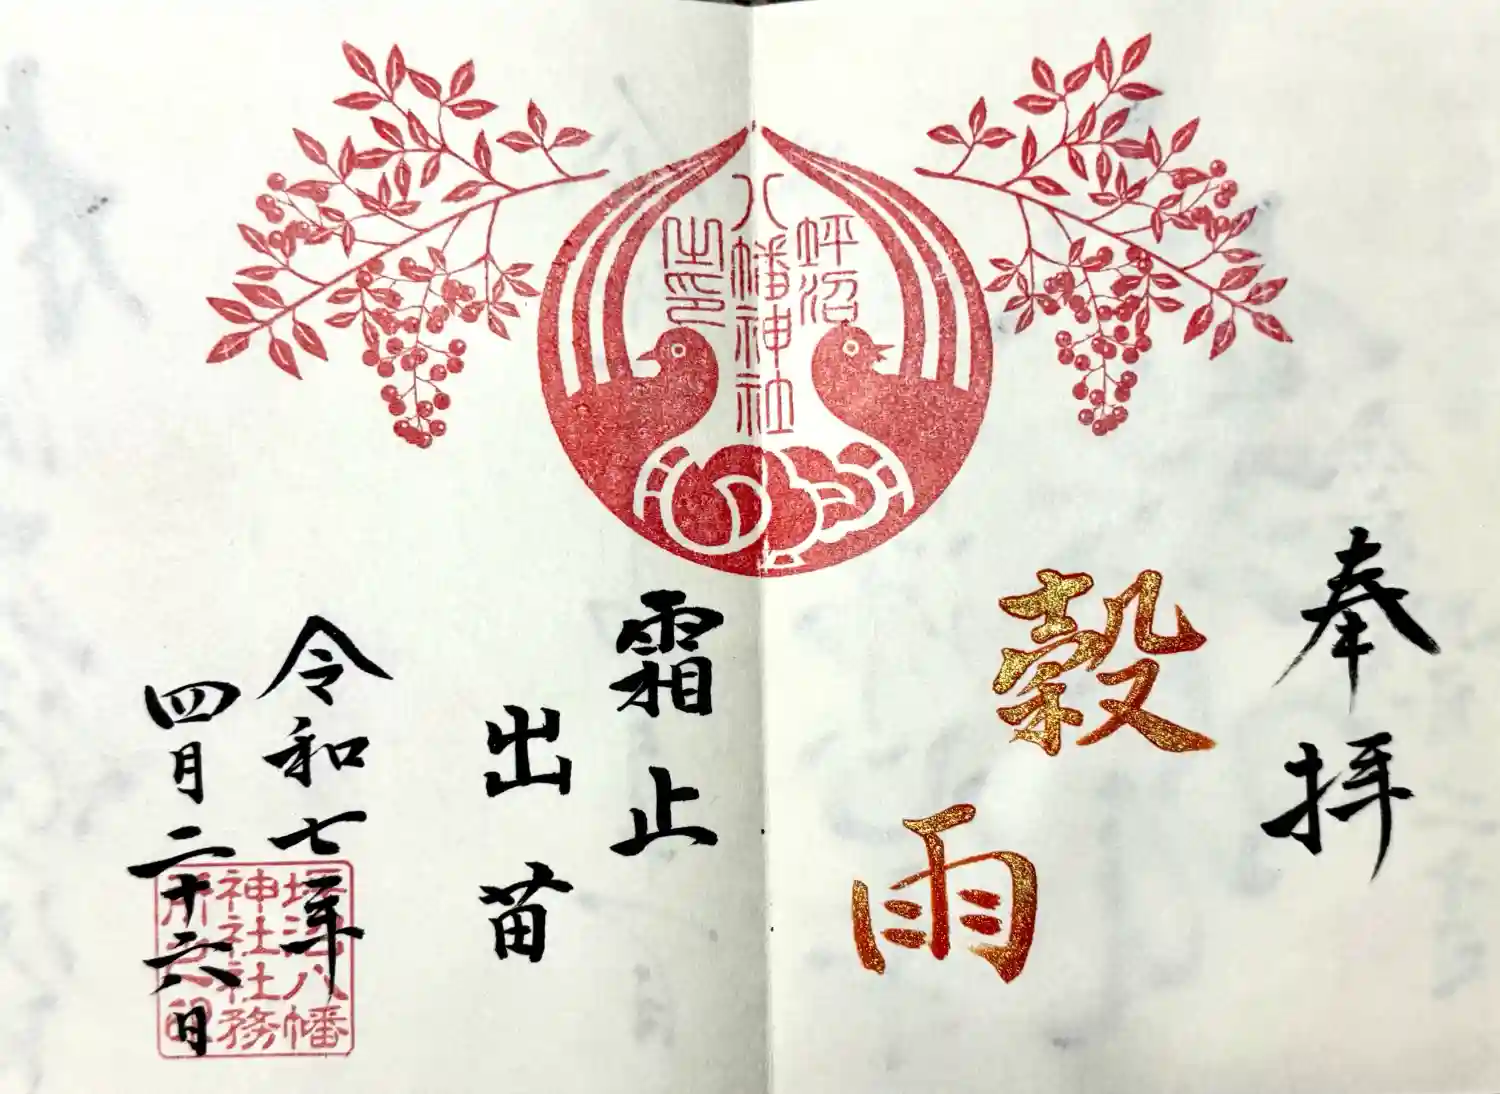 奉拝
坪沼
八幡神社
之印
穀雨
霜止
出苗
令和七年
四月二十六日
坪沼八幡
神社社務
所之印